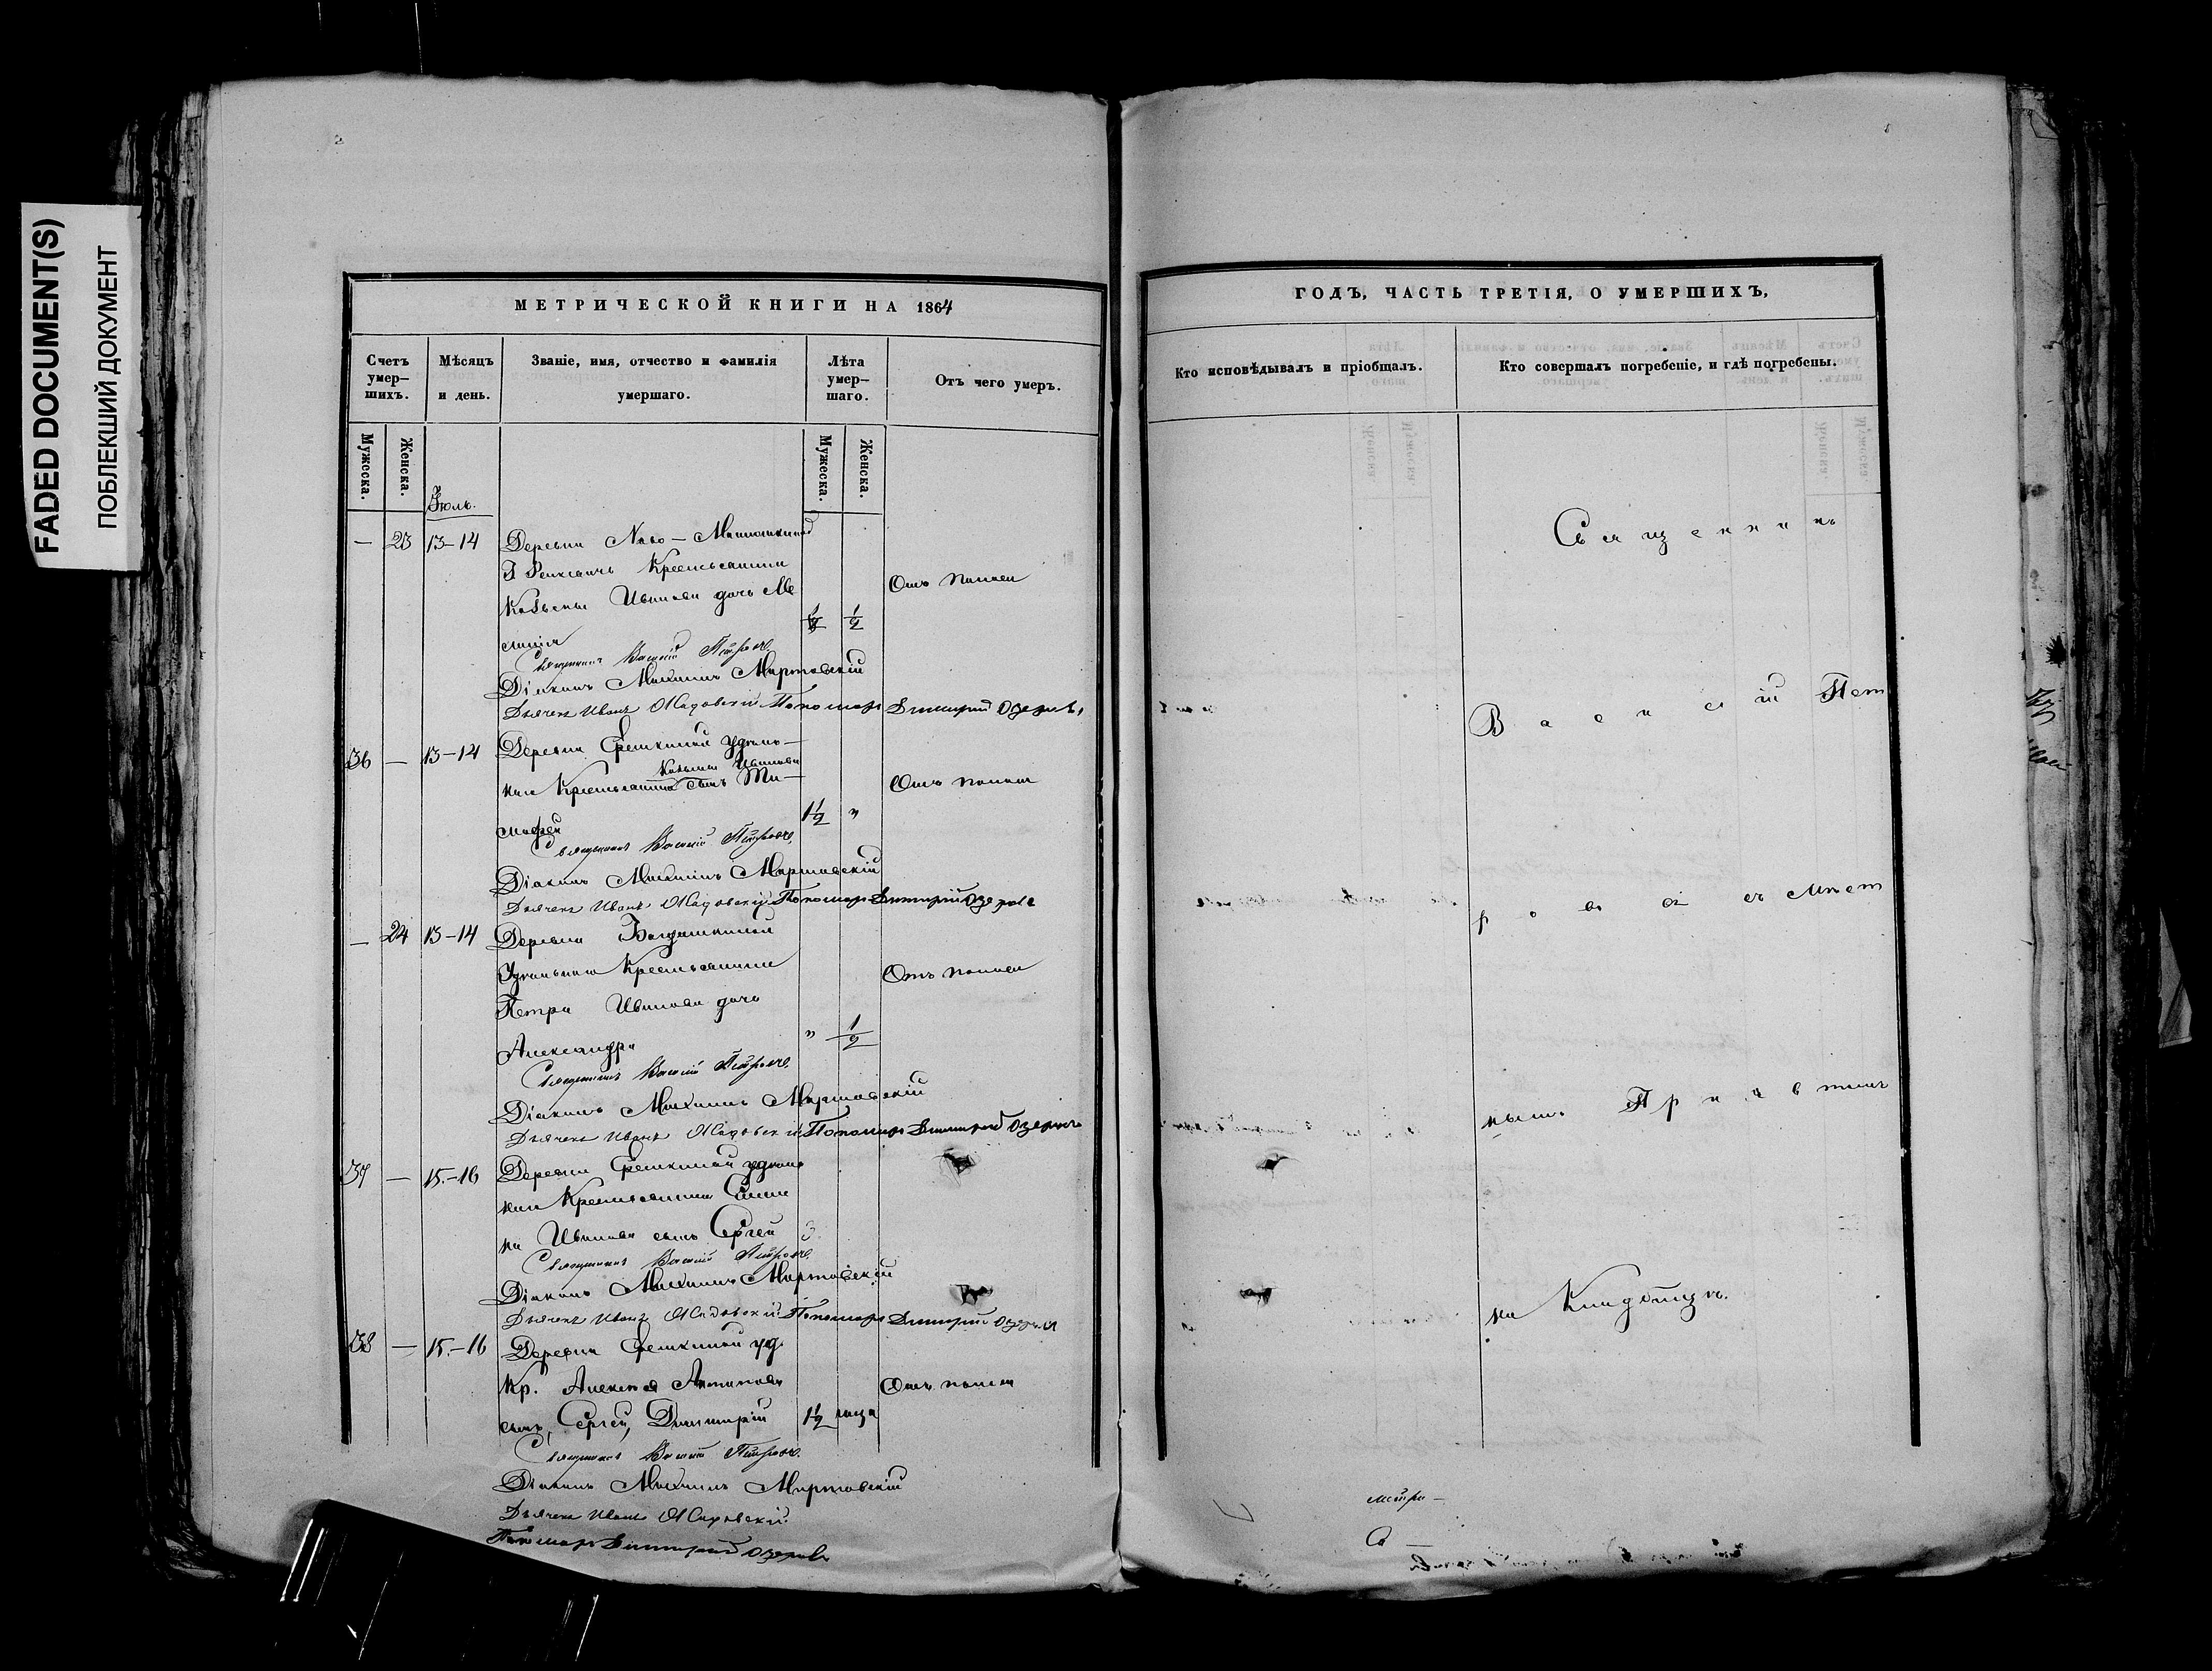 FADED DOCUMENT(S)
ПОБЛЕКШИЙ ДОКУМЕНТ
МЕТРИЧЕСКОЙ КНИГИ НА 1864
Счетъ умер-шихъ.
Мѣсяцъ и день.
Званіе, имя, отчество и фамилія умершаго.
Лѣта умер-шаго.
Отъ чего умеръ.
Мужеска.
Женска.
Мужеска.
Женска.
Іюль.
— 23 13-14 Деревни Ново-
Крестьянина
Ивана дочь Ме
Отъ поноса
1/2
Священникъ Василій Петровъ.
Діаконъ Михаилъ Мартовскій
Дьячекъ Иванъ Пономарь Димитрій Озеровъ
36 — 13-14 Деревни удѣль-
Ивана
наго Крестьянина сынъ Ти-
Отъ поноса
мофей
1 1/2 "
Священникъ Василій Петровъ.
Діаконъ Михаилъ Мартовскій
Дьячекъ Иванъ Пономарь Димитрій Озеровъ
— 24 13-14 Деревни
Удѣльнаго Крестьянина
Отъ поноса
Петра Иванова дочь
Александра
" 1/2
Священникъ Василій Петровъ.
Діаконъ Михаилъ Мартовскій
Дьячекъ Иванъ Пономарь Димитрій Озеровъ
37 — 15-16 Деревни удѣль
наго Крестьянина
на Иванова сынъ Сергей 3
Священникъ Василій Петровъ.
Діаконъ Михаилъ Мартовскій
Дьячекъ Иванъ Пономарь Димитрій Озеровъ
38 — 15-16 Деревни уд.
Кр. Алексея Антипова
Отъ поноса
сынъ, Сергей, Димитрій 1 1/2 года
Священникъ Василій Петровъ.
Діаконъ Михаилъ Мартовскій
Дьячекъ Иванъ
Пономарь Димитрій Озеровъ
ГОДЪ, ЧАСТЬ ТРЕТІЯ, О УМЕРШИХЪ,
Кто исповѣдывалъ и пріобщалъ.
Кто совершалъ погребеніе, и гдѣ погребены.
Священникъ
Василій Пет
ровъ съ мѣст
нымъ Причтомъ
на Кладбищѣ.